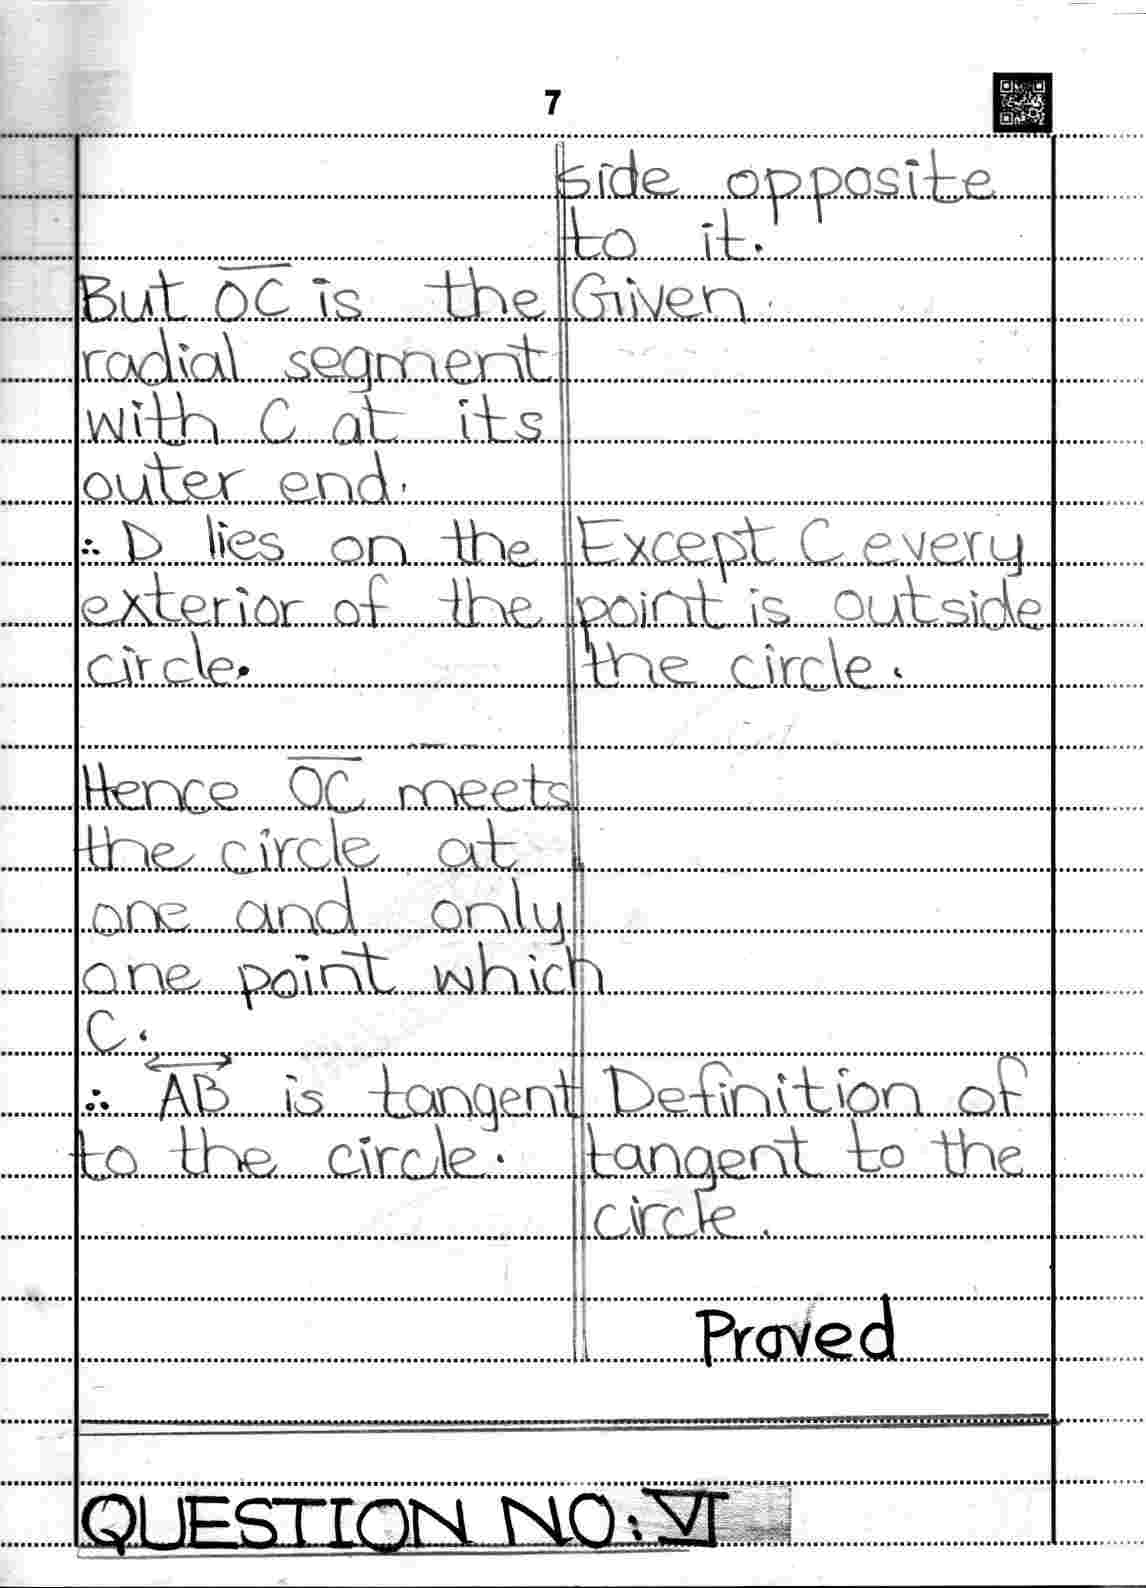 7
side opposite
to it.
But OC is the Given
radial segment
with C at its
outer end.
∴ D lies on the Except C every
exterior of the point is outside
circle. the circle.
Hence OC meets
the circle at
one and only
one point which
C.
∴ AB is tangent Definition of
to the circle. tangent to the
circle.
Proved
QUESTION NO: VI